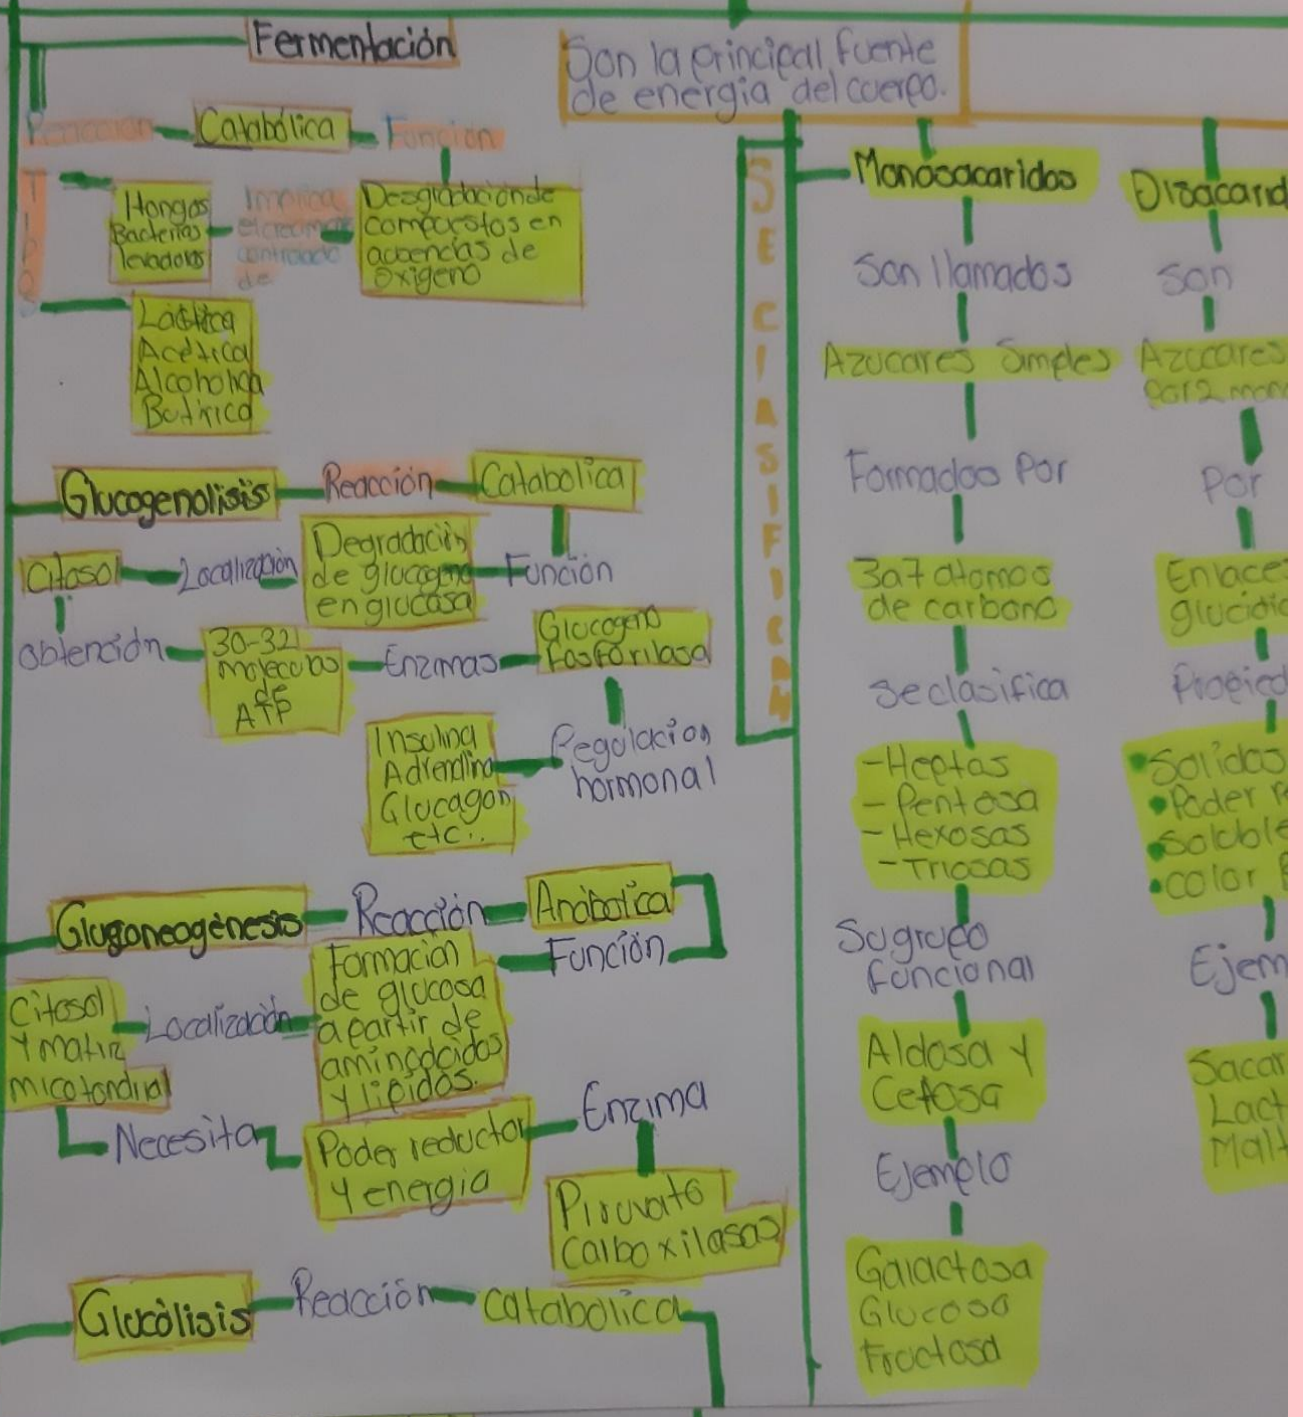 Fermentación
Reacción
Catabólica
Función
Tipos
Hongos
Bacterias
levadoras
Implica
el
controlado
de
Desgradación de
compuestos en
ausencias de
oxigeno
Láctica
Acética
Alcoholica
Butirica
Glucogenolisis
Reacción
Catabolica
Citosol
Localización
Degradación
de glucogeno
en glucosa
Función
obtención
30-32
moleculas
de
ATP
Enzimas
Glucogeno
fosforilasa
Insulina
Adrenalina
Glucagon
etc..
Regulacion
hormonal
Glugoneogénesis
Reacción
Anabolica
Función
Citosol
Y matriz
micotondrial
Localización
Formacion
de glucosa
apartir de
aminoácidos
y lipidos.
Necesita
Poder reductor
y energia
Enzima
Piruvato
Calboxilasas
Glucólisis
Reacción
Catabolica
Son la principal fuente
de energia del cuerpo.
SE CLASIFICAN
Monosacaridos
Son llamados
Azucares Simples
Formados Por
3a7 atomos
de carbono
se clasifica
-Heptas
- Pentosa
- Hexosas
-Triosas
Su grupo
funcional
Aldosa y
Cetosa
Ejemplo
Galactosa
Glucosa
Fructosa
Disacarid
Son
Azucares
por 2 mon
Por
Enlace
glucidic
Propied
•Solidos
•Poder r
•Soluble
•Color
Ejem
Sacar
Lact
Malt